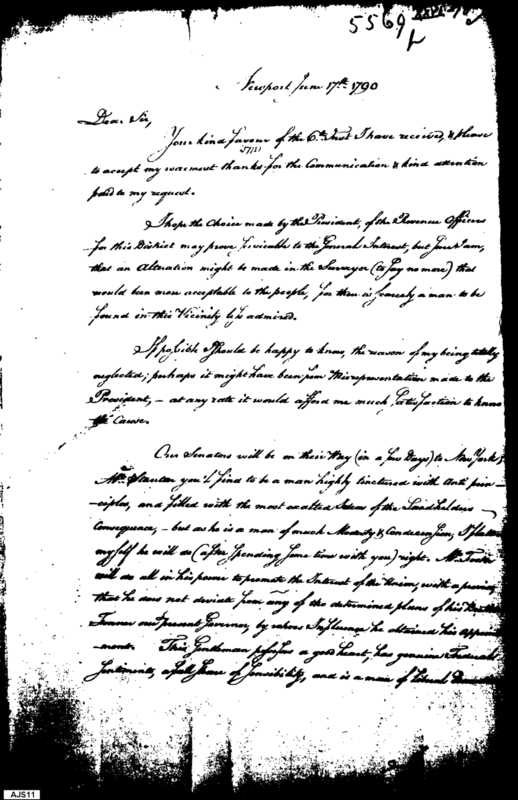 5569
L
Newport June 17th 1790
Dear Sir,
Your kind favour of the 6th Inst I have received, & please
to accept my warmest thanks for the Communication & kind attention
paid to my request.
I hope the Choice made by the President, of the Revenue Officers
for this District may prove servicable to the General Interest, but sure I am,
that an Alteration might be made in the Surveyor (to say no more) that
would been more acceptable to the people, for there is scarcely a man to be
found in this Vicinity less admired.
If possible I should be happy to know, the reason of my being totally
neglected; perhaps it might have been from Misrepresentation made to the
President, — at any rate it would afford me much satisfaction to know
the Cause.
Our Senators will be on their Way (in a few Days) to New York &
Mr. Stanton you'l find to be a man highly tinctured with Anti prin-
-ciples, and filled with the most exalted Ideas of the Landholders
Consequence, — but as he is a man of much Modesty & Condecension, I flatter
myself he will do (after spending some time with you) right. Mr. Foster
will do all in his power to promote the Interest of the Union, with a proviso,
that he does not deviate from any of the determined plans of his
Former and present Governor, by whose Influence he obtained his Appoint
-ment. This Gentleman possesses a good heart, has genuine Federal
Sentiments, a full share of Sensibility, and is a man of liberal
AJS11